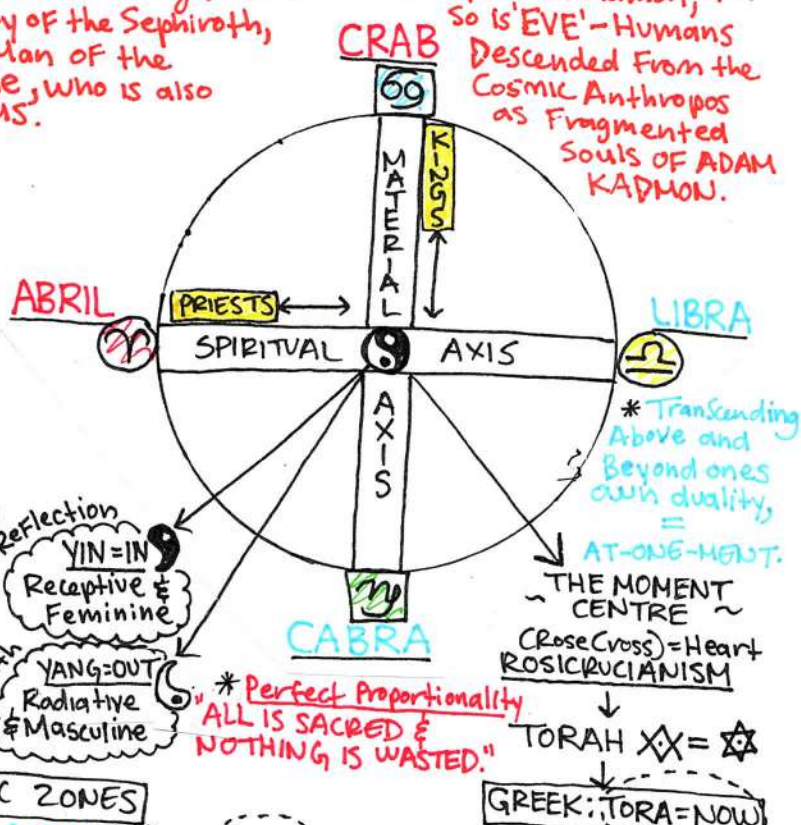 y of the Sephiroth,
Man of the
e, who is also
us.
so is 'EVE' - Humans
Descended From the
Cosmic Anthropos
as Fragmented
Souls OF ADAM
KADMON.
CRAB
♋
MATERIAL
KINGS
ABRIL
♈
PRIESTS
SPIRITUAL
AXIS
LIBRA
♎
* Transcending
Above and
Beyond ones
own duality,
=
AT-ONE-MENT.
AXIS
Reflection
YIN=IN
Receptive &
Feminine
YANG=OUT
Radiative
& Masculine
♑
CABRA
* Perfect Proportionality
"ALL IS SACRED &
NOTHING IS WASTED."
THE MOMENT
~ CENTRE ~
(Rose Cross)=Heart
ROSICRUCIANISM
TORAH XX = ✡
GREEK: TORA=NOW
C ZONES